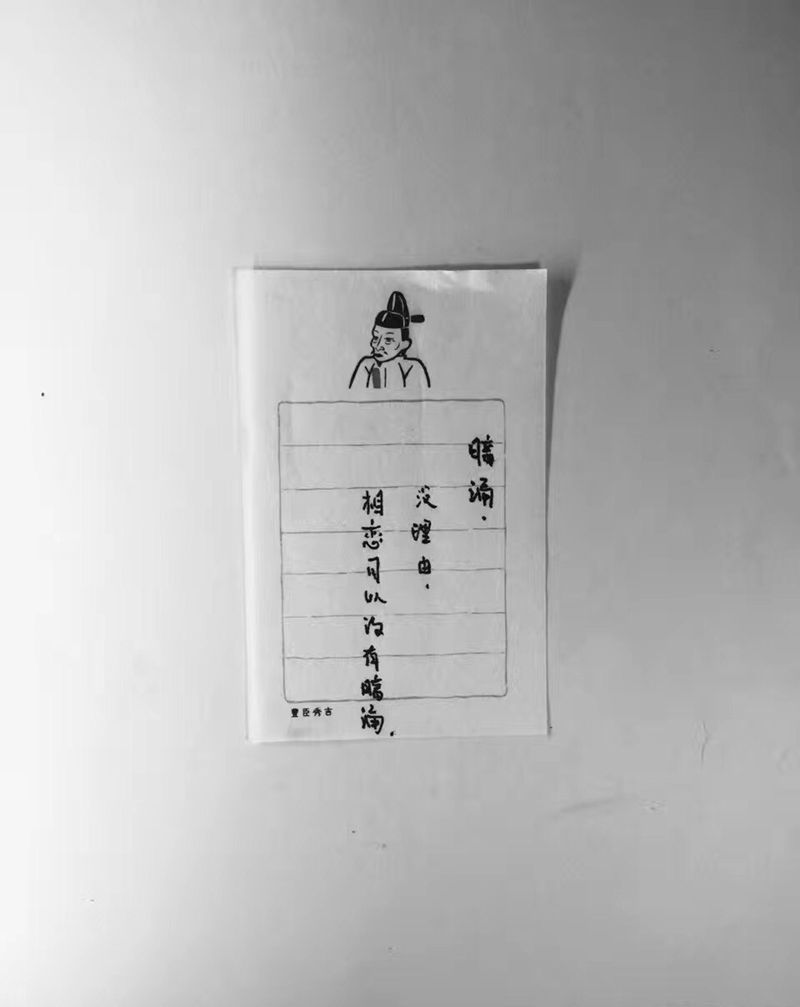 暗涌.
没理由.
相恋可以没有暗涌.
豊臣秀吉